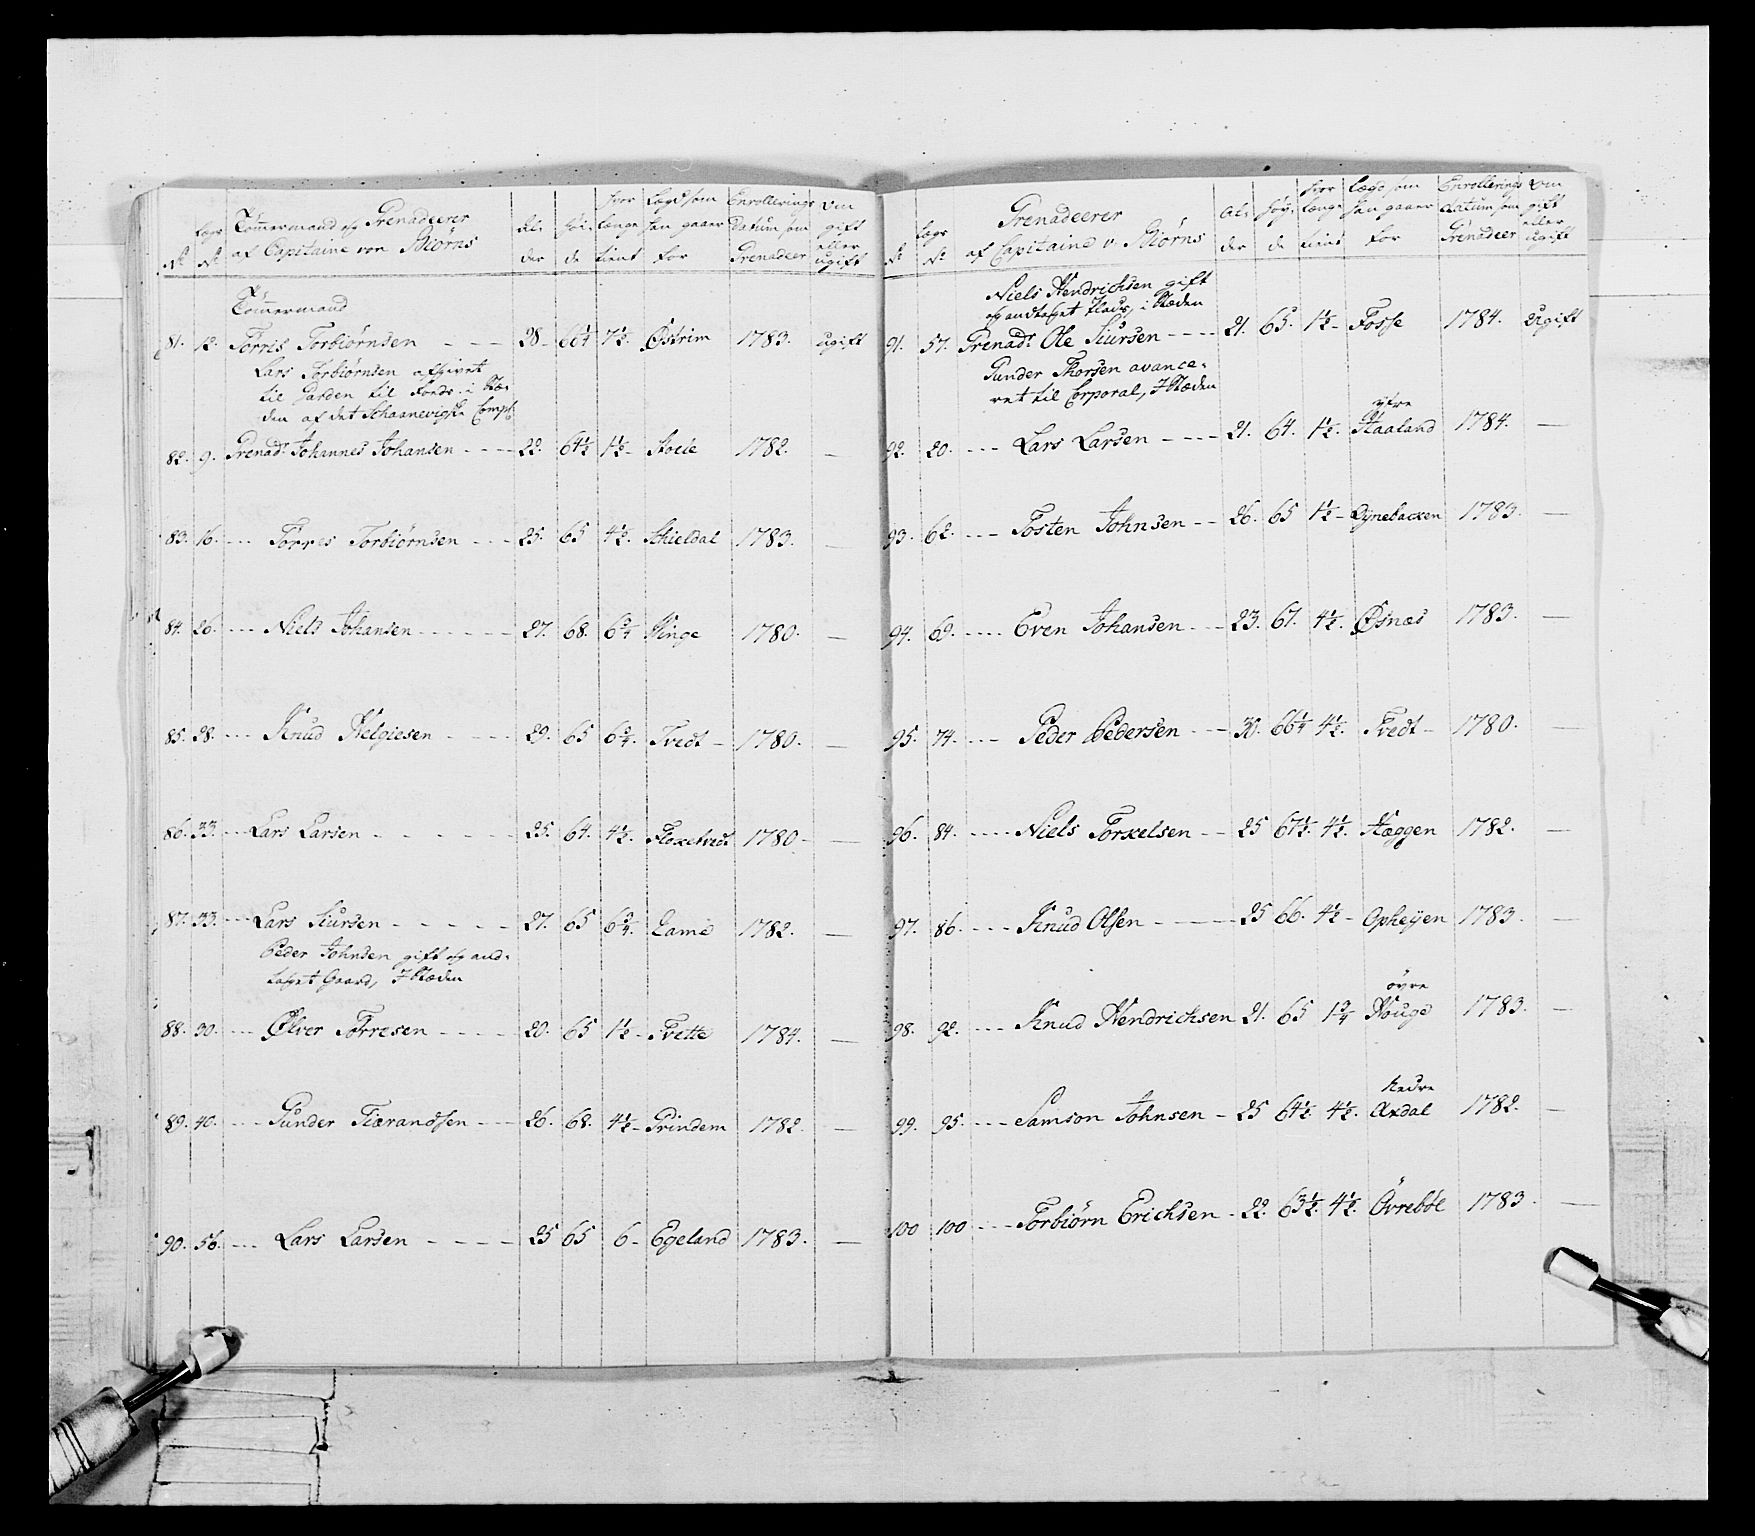 No | Lægs No | Tömmermand og Grenadeerer af Capitaine von Biörns | Al: der | Höi: de | hvor længe tient | Lægd som han gaaer for | Enrollerings Datum som Grenadeer | om gift eller ugift
Tömmermand
81. 12. Torris Torbiörnsen - - - 28 - 66¼ 7½. Østrim 1783. ugift
Lars Torbiörnsen afgivet
til Garden til Fonds. i Stæ:
den af det Schaanevigske Comp:
82. 9. Grenadr Johannes Johansen - - - - 22. 64½ 1½ - Stoele 1782. —
83. 16. - - - Torres Torbiörnsen - - - 25. 65 4½. Schieldal 1783. —
84. 26. - - - Niels Johansen - - - - - - 27. 68. 6¾ Hinge 1780. —
85. 28. - - - Knud Helgiesen - - - - - 29. 65 6¾. Tvedt - 1780. —
86. 33. - - - Lars Larsen - - - - - - 25. 64. 4½. Floxetvedt 1780 - —
87. 33. - - - Lars Siursen - - - - - - 27. 65 6¾. Eame 1782. —
Peder Johnsen gift og and:
taget Gaard, I Stæden
88. 30. - - - Ølver Torresen - - - - - 20. 65 1½ - Tvette 1784. —
89. 40. - - - Gunder Tiærandsen - - - 26. 68. 4½ - Grindem 1782. —
90. 56. - - - Lars Larsen - - - - 25 65 6 - Egeland 1783. —
No | Lægs No | Grenadeerer af Capitaine v. Biörns | Al: der | Höy: de | hvor længe tient | Lægd som han gaaer for | Enrollerings datum som Grenadeer | om gift eller ugift
Niels Hendrichsen gift
og andtaget Plads, i Stæden
91. 57. Grenadr Ole Siursen - - - - 21. 65. 1½ - Fosse 1784. Ugift
Gunder Thorsen avance:
ret til Corporal, I Stæden
yfre
92. 20. - - - Lars Larsen - - - - 21. 64. 1½. Haaland 1784. —
93. 62. - - - Tosten Johnsen - - 26. 65 1½ - Dynebacken 1783. —
94. 69. - - - - Even Johansen - - - 23. 67. 4½. Øsnæs 1783. —
95. 74. - - - Peder Pedersen - - - 30. 66¼ 4½. Tvedt - 1780. —
96. 84. - - - - Niels Torkelsen - - 25 67½. 4½. Hæggen 1782. —
97. 86. - - - - Knud Olsen - - - - - 25 66. 4½ - Opheyen 1783. —
öyre
98. 92. - - - Knud Hendrichsen 21. 65 1¾ Houge 1783. —
Nedre
99. 95. - - - - Samson Johnsen - 25 64½ 4½. Axdal 1782. —
100 100 - - - - Torbiörn Erichsen - 22. 63½. 4½ Övreböe 1783. —